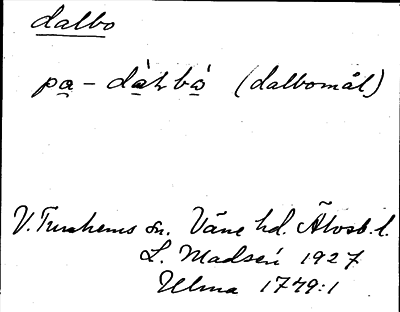 dalbo
pa - dàłbǻ (dalbomål)
V. Tunhems sn. Väne hd. Älvsb. l.
L. Madsén 1927
Ulma 1749:1